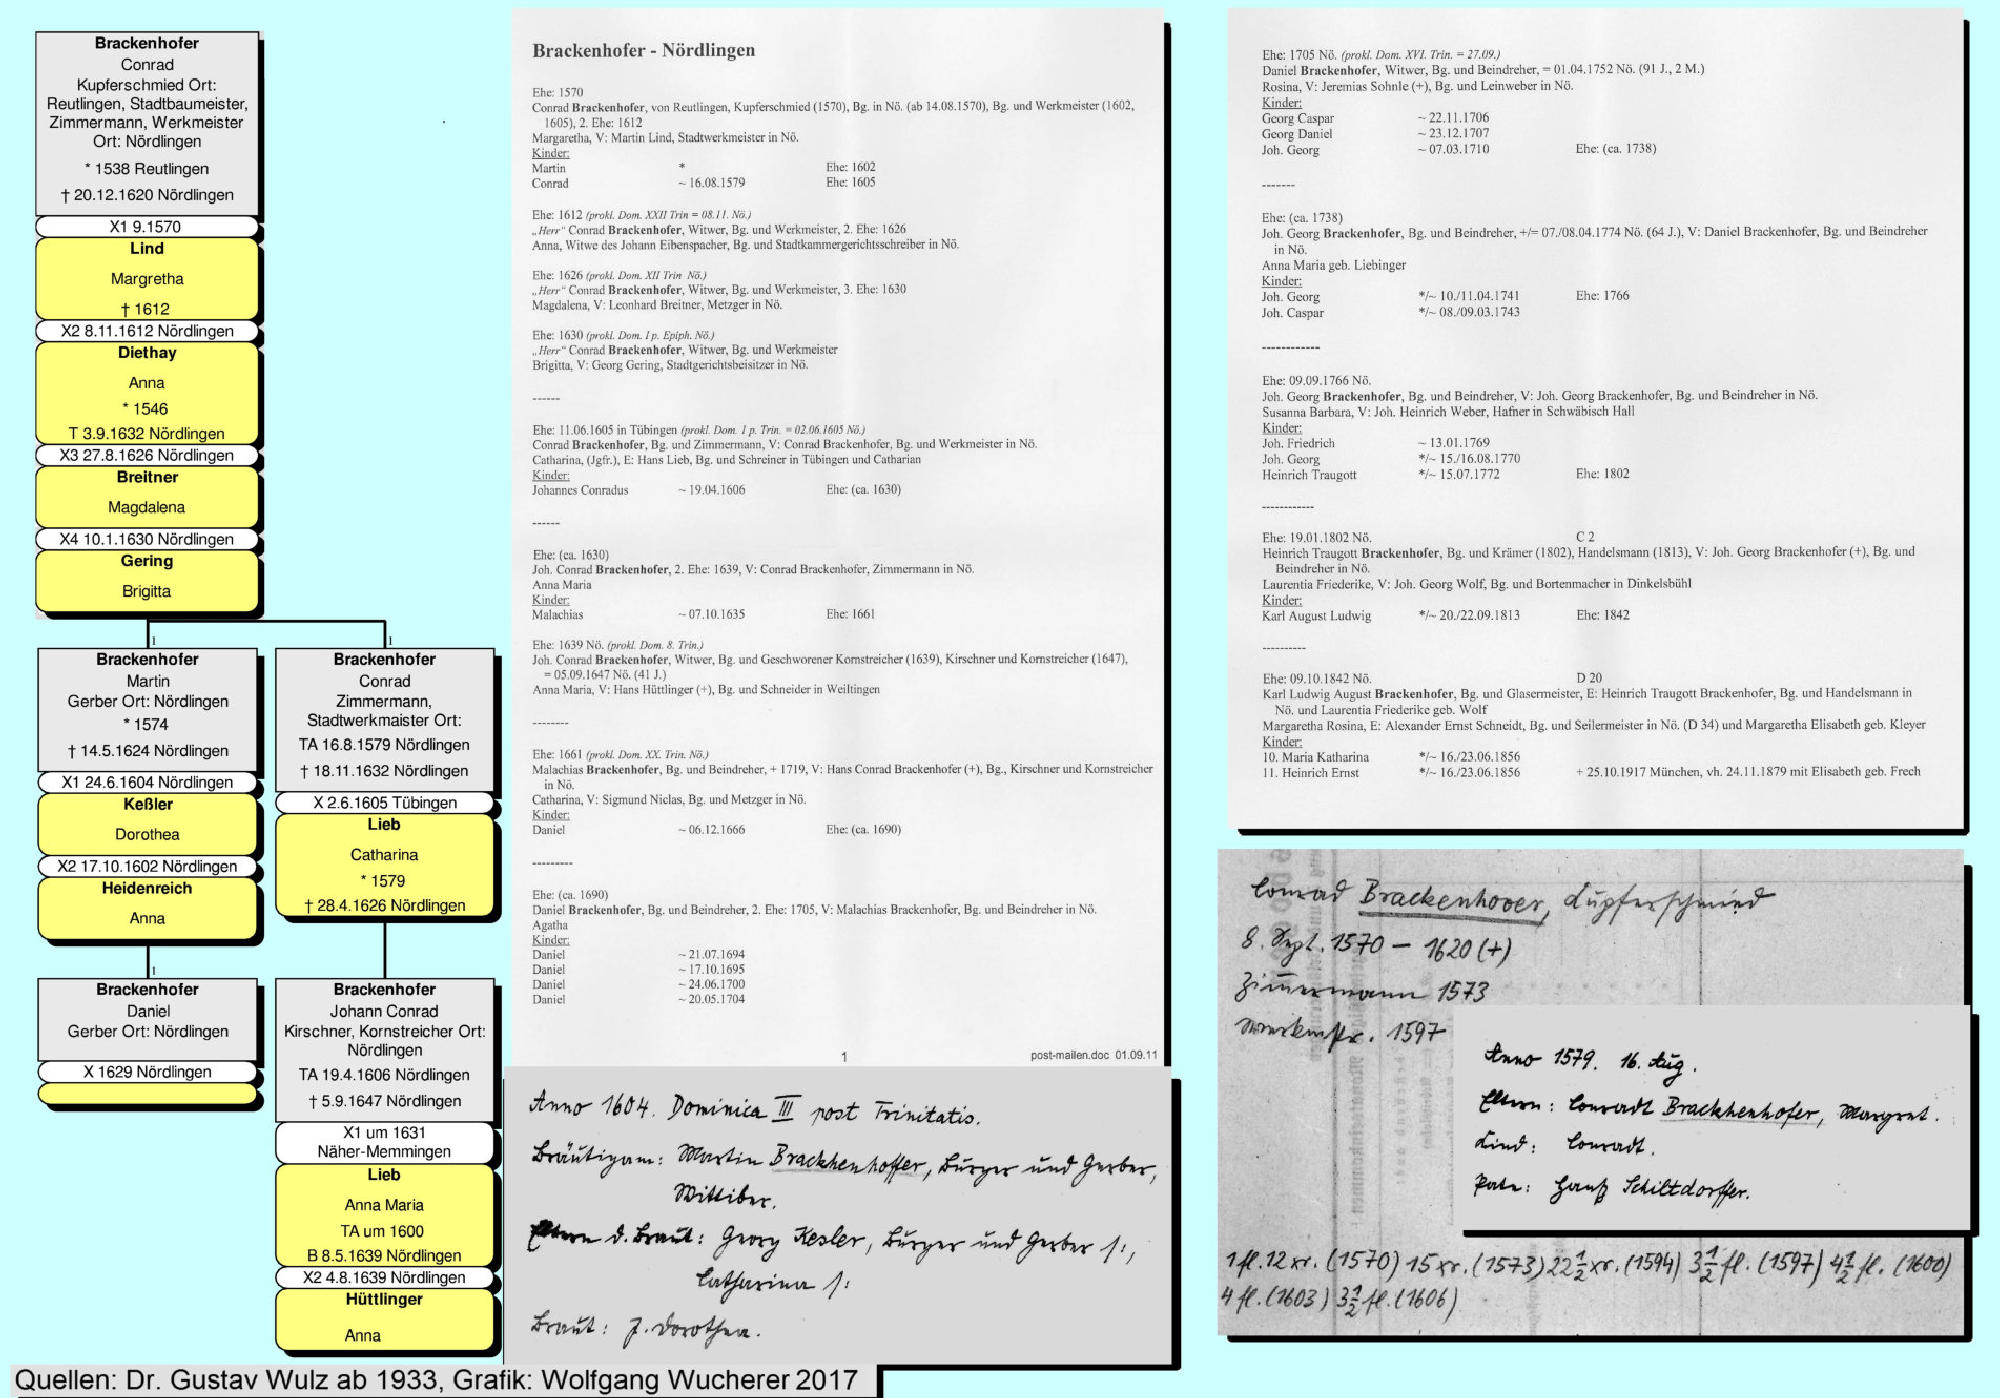 Brackenhofer
Conrad
Kupferschmied Ort:
Reutlingen, Stadtbaumeister,
Zimmermann, Werkmeister
Ort: Nördlingen
* 1538 Reutlingen
† 20.12.1620 Nördlingen
X1 9.1570
Lind
Margretha
† 1612
X2 8.11.1612 Nördlingen
Diethay
Anna
* 1546
T 3.9.1632 Nördlingen
X3 27.8.1626 Nördlingen
Breitner
Magdalena
X4 10.1.1630 Nördlingen
Gering
Brigitta
1
Brackenhofer
Martin
Gerber Ort: Nördlingen
* 1574
† 14.5.1624 Nördlingen
X1 24.6.1604 Nördlingen
Keßler
Dorothea
X2 17.10.1602 Nördlingen
Heidenreich
Anna
1
Brackenhofer
Daniel
Gerber Ort: Nördlingen
X 1629 Nördlingen
1
Brackenhofer
Conrad
Zimmermann,
Stadtwerkmaister Ort:
TA 16.8.1579 Nördlingen
† 18.11.1632 Nördlingen
X 2.6.1605 Tübingen
Lieb
Catharina
* 1579
† 28.4.1626 Nördlingen
Brackenhofer
Johann Conrad
Kirschner, Kornstreicher Ort:
Nördlingen
TA 19.4.1606 Nördlingen
† 5.9.1647 Nördlingen
X1 um 1631
Näher-Memmingen
Lieb
Anna Maria
TA um 1600
B 8.5.1639 Nördlingen
X2 4.8.1639 Nördlingen
Hüttlinger
Anna
Brackenhofer - Nördlingen
Ehe: 1570
Conrad Brackenhofer, von Reutlingen, Kupferschmied (1570), Bg. in Nö. (ab 14.08.1570), Bg. und Werkmeister (1602,
1605), 2. Ehe: 1612
Margaretha, V: Martin Lind, Stadtwerkmeister in Nö.
Kinder:
Martin * Ehe: 1602
Conrad ~ 16.08.1579 Ehe: 1605
Ehe: 1612 (prokl. Dom. XXII Trin = 08.11. Nö.)
„Herr“ Conrad Brackenhofer, Witwer, Bg. und Werkmeister, 2. Ehe: 1626
Anna, Witwe des Johann Eibenspacher, Bg. und Stadtkammergerichtsschreiber in Nö.
Ehe: 1626 (prokl. Dom. XII Trin Nö.)
„Herr“ Conrad Brackenhofer, Witwer, Bg. und Werkmeister, 3. Ehe: 1630
Magdalena, V: Leonhard Breitner, Metzger in Nö.
Ehe: 1630 (prokl. Dom. 1 p. Epiph. Nö.)
„Herr“ Conrad Brackenhofer, Witwer, Bg. und Werkmeister
Brigitta, V: Georg Gering, Stadtgerichtsbeisitzer in Nö.
------
Ehe: 11.06.1605 in Tübingen (prokl. Dom. 1 p. Trin. = 02.06.1605 Nö.)
Conrad Brackenhofer, Bg. und Zimmermann, V: Conrad Brackenhofer, Bg. und Werkmeister in Nö.
Catharina, (Jgfr.), E: Hans Lieb, Bg. und Schreiner in Tübingen und Catharian
Kinder:
Johannes Conradus ~ 19.04.1606 Ehe: (ca. 1630)
------
Ehe: (ca. 1630)
Joh. Conrad Brackenhofer, 2. Ehe: 1639, V: Conrad Brackenhofer, Zimmermann in Nö.
Anna Maria
Kinder:
Malachias ~ 07.10.1635 Ehe: 1661
Ehe: 1639 Nö. (prokl. Dom. 8. Trin.)
Joh. Conrad Brackenhofer, Witwer, Bg. und Geschworener Kornstreicher (1639), Kirschner und Kornstreicher (1647),
= 05.09.1647 Nö. (41 J.)
Anna Maria, V: Hans Hüttlinger (+), Bg. und Schneider in Weiltingen
--------
Ehe: 1661 (prokl. Dom. XX. Trin. Nö.)
Malachias Brackenhofer, Bg. und Beindreher, + 1719, V: Hans Conrad Brackenhofer (+), Bg., Kirschner und Kornstreicher
in Nö.
Catharina, V: Sigmund Niclas, Bg. und Metzger in Nö.
Kinder:
Daniel ~ 06.12.1666 Ehe: (ca. 1690)
---------
Ehe: (ca. 1690)
Daniel Brackenhofer, Bg. und Beindreher, 2. Ehe: 1705, V: Malachias Brackenhofer, Bg. und Beindreher in Nö.
Agatha
Kinder:
Daniel ~ 21.07.1694
Daniel ~ 17.10.1695
Daniel ~ 24.06.1700
Daniel ~ 20.05.1704
1 post-mailen.doc 01.09.11
Anno 1604. Dominica III post Trinitatis.
Bräutigam: Martin Brackhenhoffer, Bürger und Gerber,
Wittiber.
Eltern d. Braut: Georg Kesler, Bürger und Gerber f:,
Catharina f:
Braut: J. Dorothea.
Ehe: 1705 Nö. (prokl. Dom. XVI. Trin. = 27.09.)
Daniel Brackenhofer, Witwer, Bg. und Beindreher, = 01.04.1752 Nö. (91 J., 2 M.)
Rosina, V: Jeremias Sohnle (+), Bg. und Leinweber in Nö.
Kinder:
Georg Caspar ~ 22.11.1706
Georg Daniel ~ 23.12.1707
Joh. Georg ~ 07.03.1710 Ehe: (ca. 1738)
-------
Ehe: (ca. 1738)
Joh. Georg Brackenhofer, Bg. und Beindreher, +/= 07./08.04.1774 Nö. (64 J.), V: Daniel Brackenhofer, Bg. und Beindreher
in Nö.
Anna Maria geb. Liebinger
Kinder:
Joh. Georg */~ 10./11.04.1741 Ehe: 1766
Joh. Caspar */~ 08./09.03.1743
------------
Ehe: 09.09.1766 Nö.
Joh. Georg Brackenhofer, Bg. und Beindreher, V: Joh. Georg Brackenhofer, Bg. und Beindreher in Nö.
Susanna Barbara, V: Joh. Heinrich Weber, Hafner in Schwäbisch Hall
Kinder:
Joh. Friedrich ~ 13.01.1769
Joh. Georg */~ 15./16.08.1770
Heinrich Traugott */~ 15.07.1772 Ehe: 1802
------------
Ehe: 19.01.1802 Nö. C 2
Heinrich Traugott Brackenhofer, Bg. und Krämer (1802), Handelsmann (1813), V: Joh. Georg Brackenhofer (+), Bg. und
Beindreher in Nö.
Laurentia Friederike, V: Joh. Georg Wolf, Bg. und Bortenmacher in Dinkelsbühl
Kinder:
Karl August Ludwig */~ 20./22.09.1813 Ehe: 1842
----------
Ehe: 09.10.1842 Nö. D 20
Karl Ludwig August Brackenhofer, Bg. und Glasermeister, E: Heinrich Traugott Brackenhofer, Bg. und Handelsmann in
Nö. und Laurentia Friederike geb. Wolf
Margaretha Rosina, E: Alexander Ernst Schneidt, Bg. und Seilermeister in Nö. (D 34) und Margaretha Elisabeth geb. Kleyer
Kinder:
10. Maria Katharina */~ 16./23.06.1856
11. Heinrich Ernst */~ 16./23.06.1856 + 25.10.1917 München, vh. 24.11.1879 mit Elisabeth geb. Frech
Conrad Brackenhover, Kupferschmied
8. Sept. 1570 — 1620 (+)
Zimmermann 1573
Werkmstr. 1597
Anno 1579. 16. Aug.
Eltern: Conradt Brackhenhofer, Margret.
Kind: Conradt.
Pate: Hanß Schiltdorffer.
1 fl. 12 xr. (1570) 15 xr. (1573) 22 1/2 xr. (1594) 3 1/2 fl. (1597) 4 1/2 fl. (1600)
4 fl. (1603) 3 1/2 fl. (1606)
Quellen: Dr. Gustav Wulz ab 1933, Grafik: Wolfgang Wucherer 2017